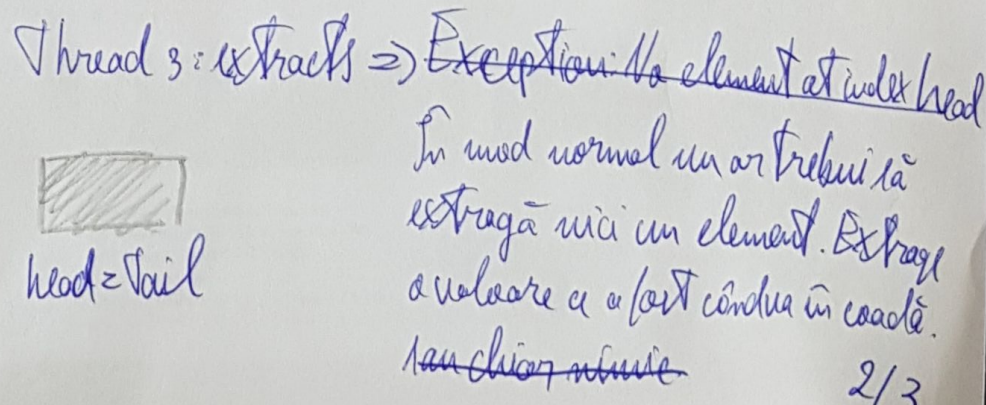 Thread 3: extracts => Exception: No element at index head
În mod normal nu ar trebui să
extragă nici un element. Extrage
head = tail
o valoare ce a fost cândva în coadă.
sau chiar nimic
2/3